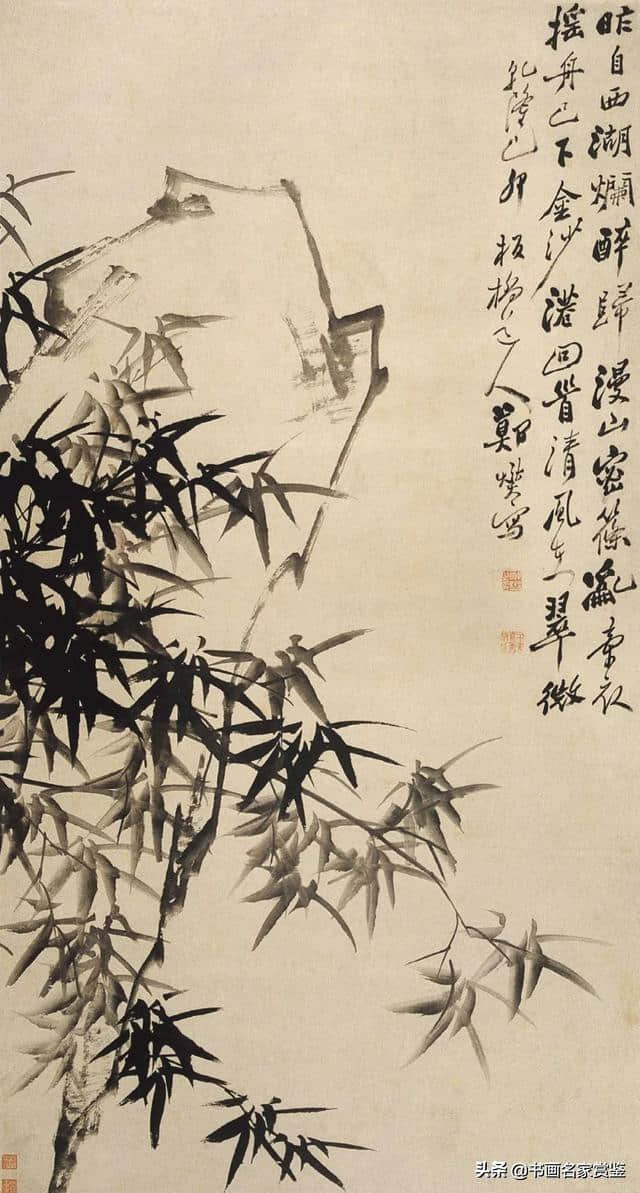 昨自西湖爛醉歸漫山密篠亂牽衣
搖舟已下金沙港回首清風在翠微
乾隆己卯板橋道人鄭燮寫
头条 @书画名家赏鉴